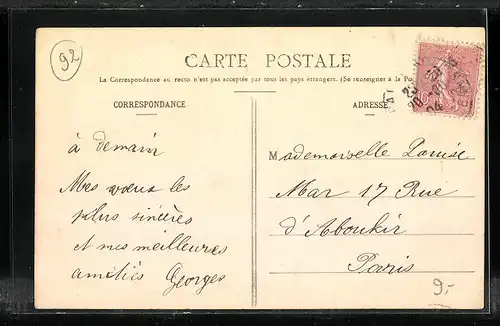 92
CARTE POSTALE
La Correspondance au recto n'est pas acceptée par tous les pays étrangers. (Se renseigner à la Po
CORRESPONDANCE
ADRESSE
à demain
Mes vœux les
plus sincères
et mes meilleures
amitiés Georges
Mademoiselle Louise
Mar 17 Rue
d'Aboukir
Paris
9.-